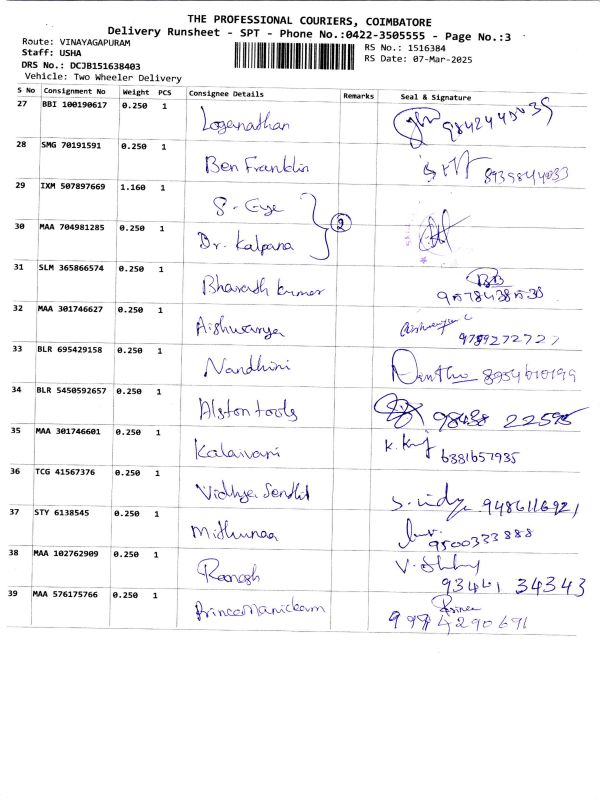 THE PROFESSIONAL COURIERS, COIMBATORE
Delivery Runsheet - SPT - Phone No.:0422-3505555 - Page No.:3
Route: VINAYAGAPURAM
RS No.: 1516384
Staff: USHA
RS Date: 07-Mar-2025
DRS No.: DCJB151638403
Vehicle: Two Wheeler Delivery
S No Consignment No Weight PCS Consignee Details Remarks Seal & Signature
27 BBI 100190617 0.250 1 Loganathan
28 SMG 70191591 0.250 1 Ben Franklin 8939844033
29 IXM 507897669 1.160 1
30 MAA 704981285 0.250 1 Dr. Kalpana 2
31 SLM 365866574 0.250 1 Bharath kumar
32 MAA 301746627 0.250 1 Aishwarya 9789272727
33 BLR 695429158 0.250 1 Nandhini
34 BLR 5450592657 0.250 1 Alston tools 98438 22595
35 MAA 301746601 0.250 1 Kalaivani 6381657935
36 TCG 41567376 0.250 1 Vidhya Senthil 9486116921
37 STY 6138545 0.250 1 Mithunaa 9500333888
38 MAA 102762909 0.250 1 93461 34343
39 MAA 576175766 0.250 1 Prince Manickam Prince
9994290691